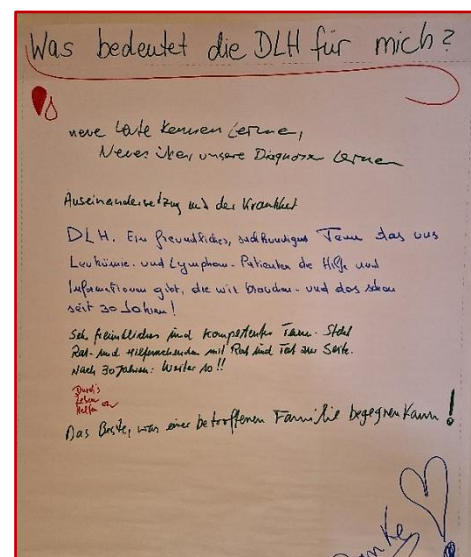 Was bedeutet die DLH für mich?
neue Leute kennen lernen,
Neues über unsere Diagnosen lernen
Auseinandersetzung mit der Krankheit
DLH. Ein freundliches, sachkundiges Team das uns
Leukämie- und Lymphom-Patienten die Hilfe und
Informationen gibt, die wir brauchen - und das schon
seit 30 Jahren!
Sehr freundliches und kompetentes Team. Steht
Rat- und Hilfesuchenden mit Rat und Tat zur Seite.
Nach 30 Jahren: Weiter so!!
Durch's
Leben
Helfen
Das Beste, was einer betroffenen Familie begegnen kann!
Danke